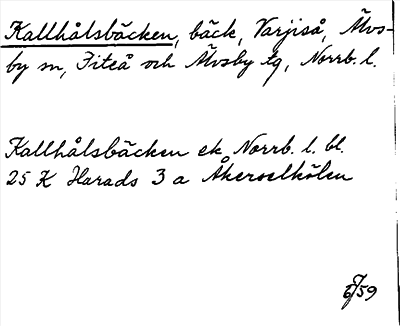 Kallhålsbäcken, bäck, Varjiså, Älvs-
by sn, Piteå och Älvsby tg, Norrb. l.
Kallhålsbäcken ek Norrb. l. bl.
25 K Harads 3 a Åkerselkölen
59